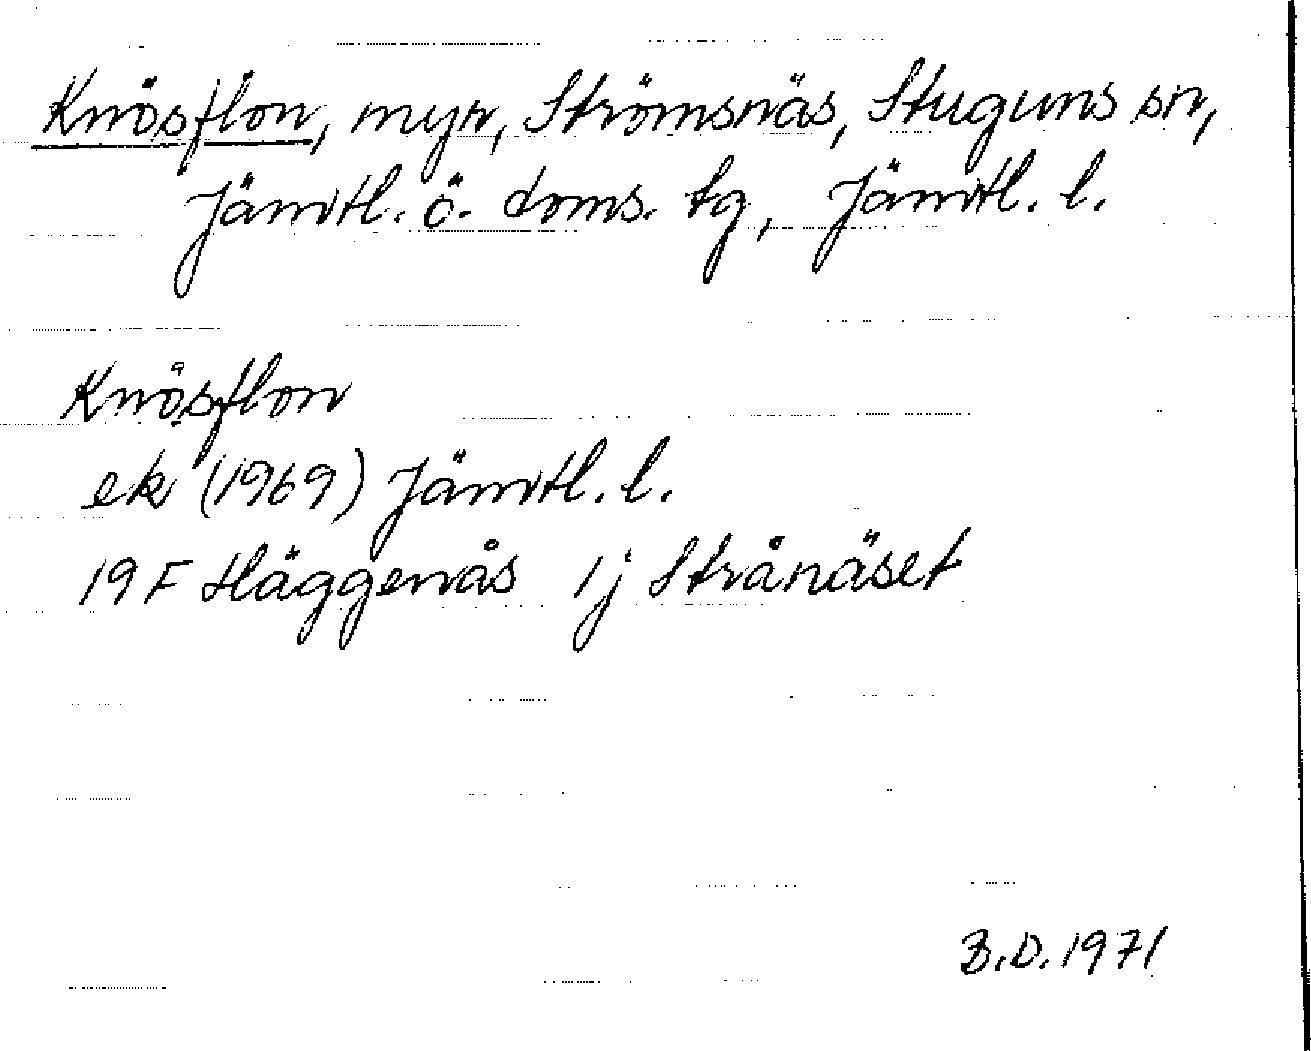 Knösflon, myr, Strömsnäs, Stuguns sn,
Jämtl. ö. doms. tg, Jämtl. l.
Knösflon
ek (1969) Jämtl. l.
19 F Häggenås 1j Strånäset
B.D. 1971